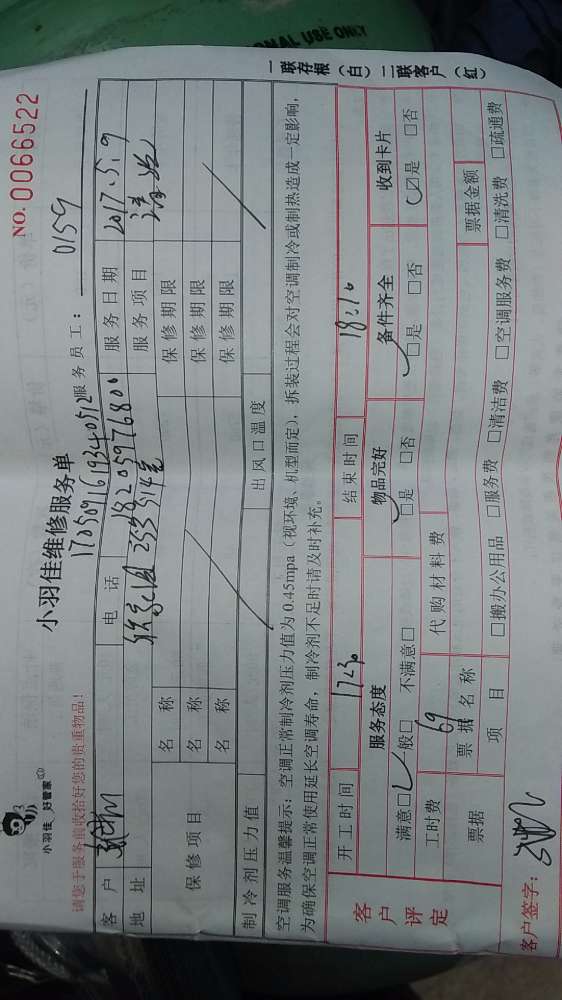 NAL USE ONLY
小羽佳 好管家
小羽佳维修服务单
NO. 0066522
1705091619340512
请您于服务前收拾好您的贵重物品!
服务员工: 0159
客户
电话 18205976800
服务日期 2017.5.9
地址
253 514室
服务项目
保修项目
名称
保修期限
名称
保修期限
名称
保修期限
制冷剂压力值
出风口温度
空调服务温馨提示: 空调正常制冷剂压力值为 0.45mpa (视环境、机型而定), 拆装过程会对空调制冷或制热造成一定影响,
为确保空调正常使用延长空调寿命, 制冷剂不足时请及时补充。
一联存根 (白) 二联客户 (红)
客户评定
开工时间 17:30 结束时间 18:10
服务态度 物品完好 备件齐全 收到卡片
满意□ 一般□ 不满意□ □是 □否 □是 □否 □是 □否
工时费 69 代购材料费
票据 票据名称 票据金额
项目 □搬办公用品 □服务费 □清洁费 □空调服务费 □清洗费 □疏通费
客户签字: